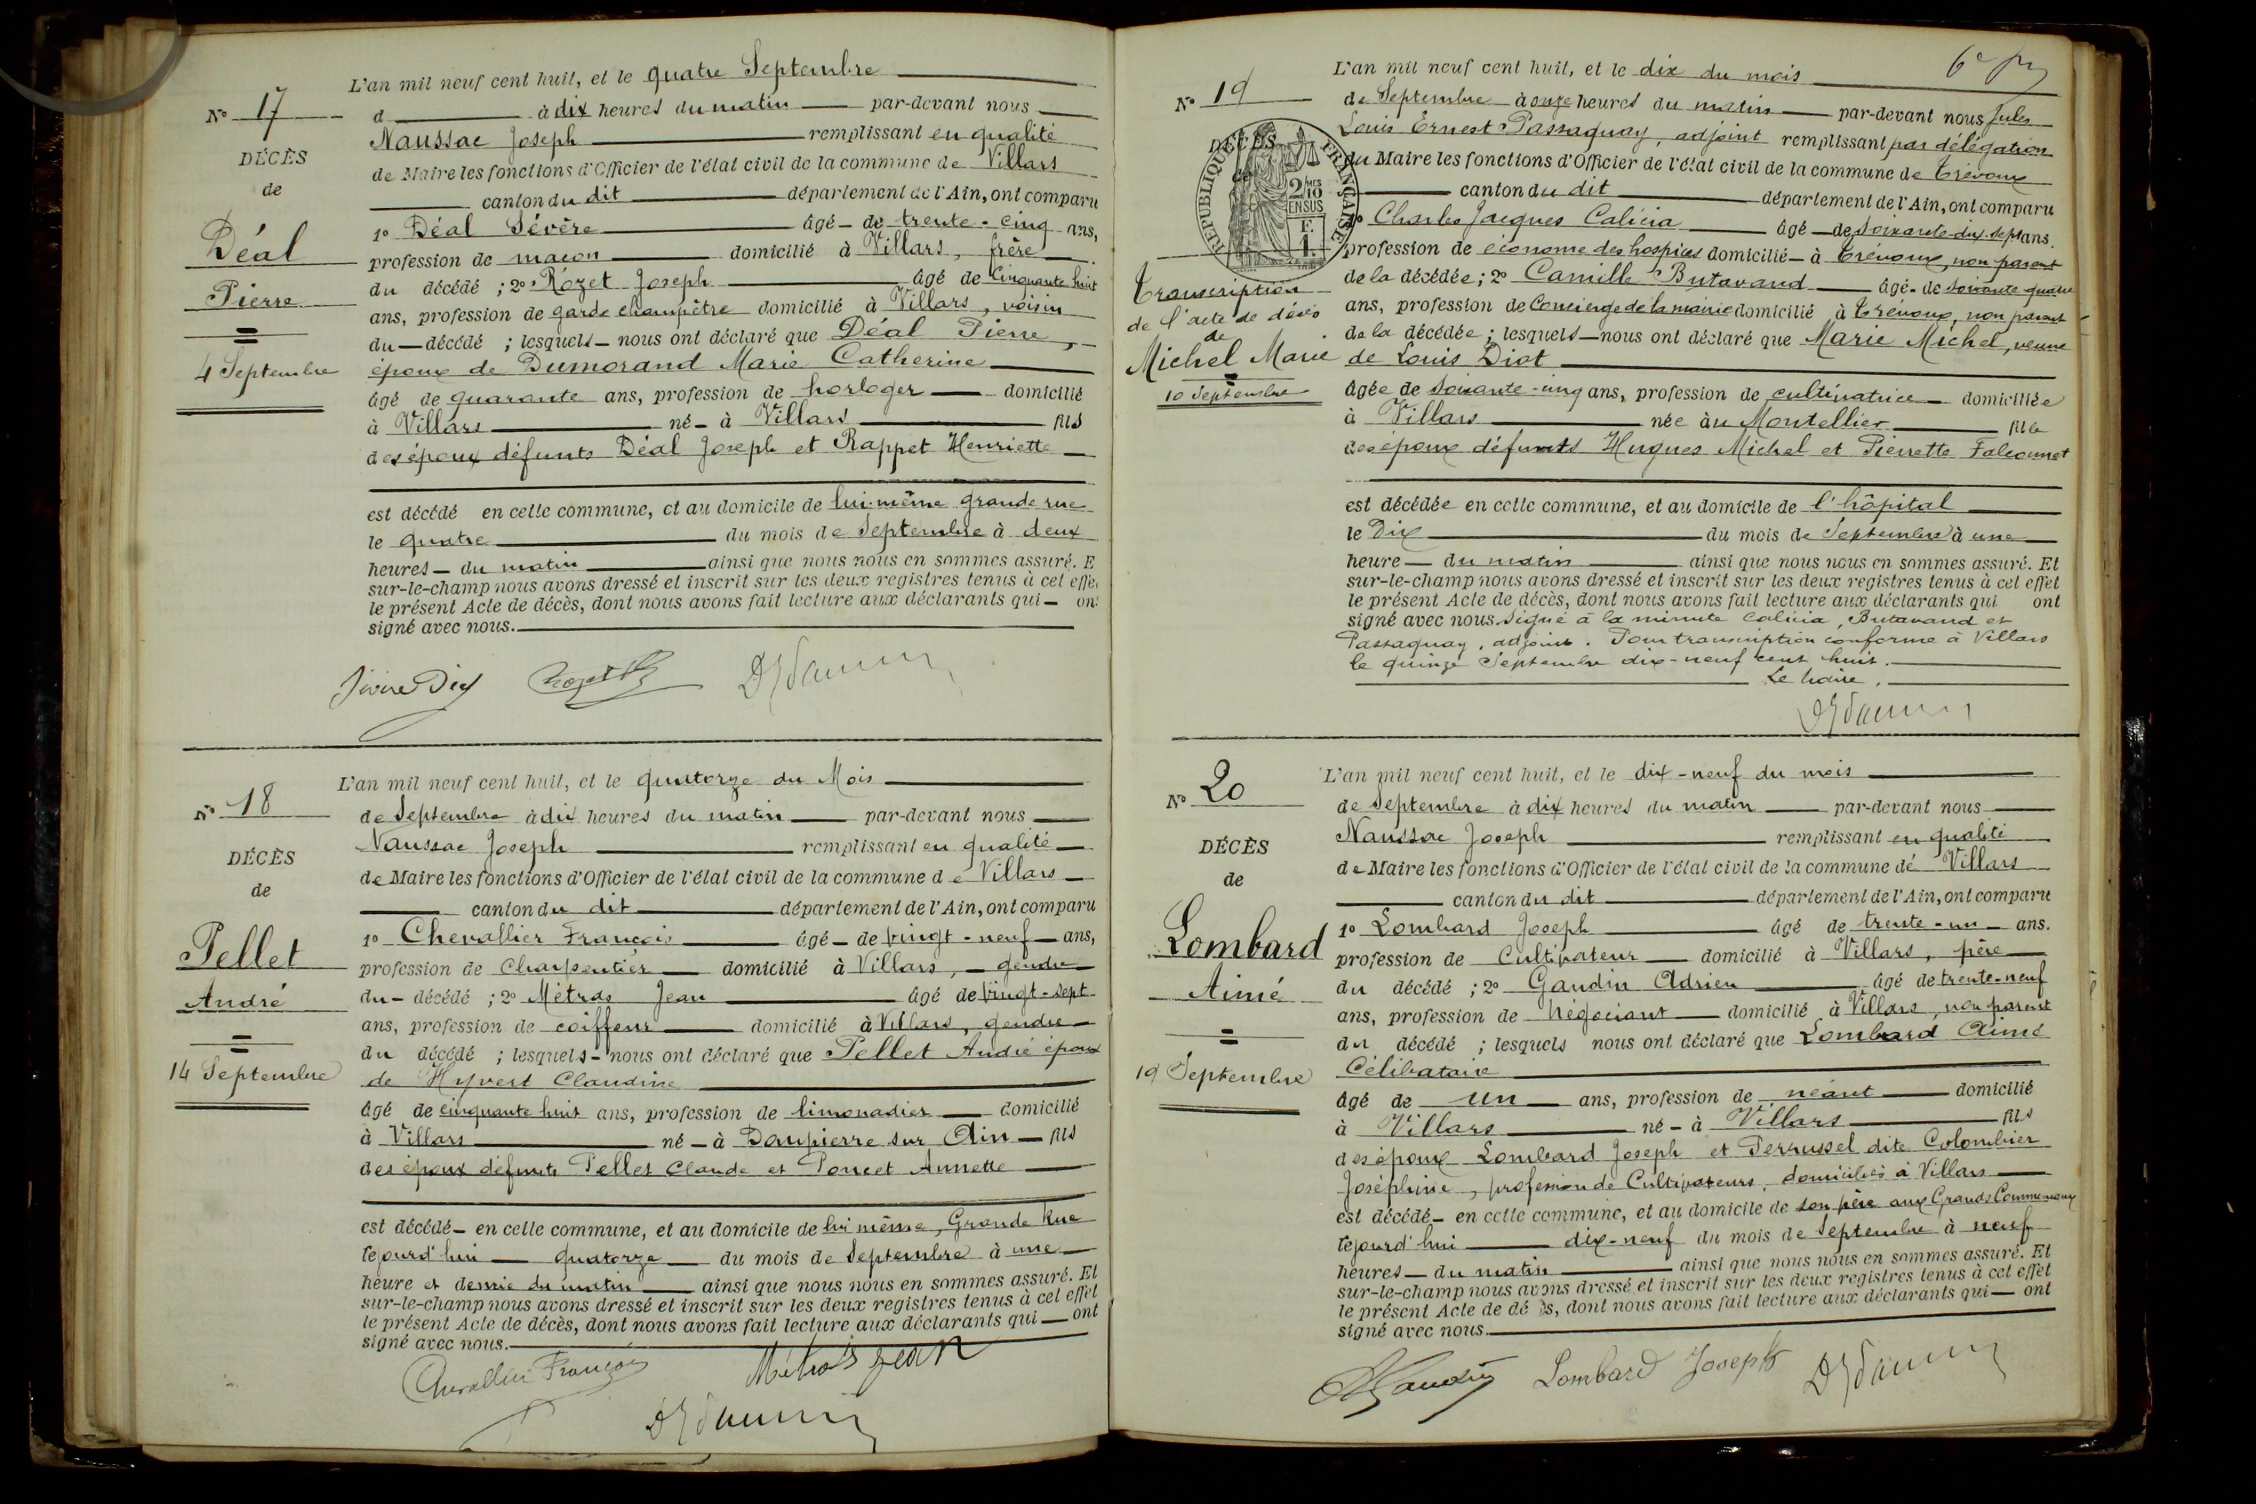 L'an mil neuf cent huit, et le quatre Septembre
N° 17
d à dix heures du matin par-devant nous
Naussac Joseph remplissant en qualité
DÉCÈS
de Maire les fonctions d'Officier de l'état civil de la commune de Villars
de
canton du dit département de l'Ain, ont comparu
Déal
1° Déal Sévère âgé de trente-cinq ans,
profession de maçon domicilié à Villars, frère
Pierre
du décédé ; 2° Rozet Joseph âgé de Cinquante huit
ans, profession de garde champêtre domicilié à Villars, voisin
du décédé ; lesquels nous ont déclaré que Déal Pierre,
4 Septembre
époux de Dumorand Marie Catherine
âgé de quarante ans, profession de horloger domicilié
à Villars né à Villars fils
des époux défunts Déal Joseph et Rappet Henriette
est décédé en cette commune, et au domicile de lui-même grande rue
le quatre du mois de Septembre à deux
heures du matin ainsi que nous nous en sommes assuré. E
sur-le-champ nous avons dressé et inscrit sur les deux registres tenus à cet effe
le présent Acte de décès, dont nous avons fait lecture aux déclarants qui on
signé avec nous.
L'an mil neuf cent huit, et le quatorze du Mois
N° 18
de Septembre à dix heures du matin par-devant nous
Naussac Joseph remplissant en qualité
DÉCÈS
de Maire les fonctions d'Officier de l'état civil de la commune de Villars
de
canton du dit département de l'Ain, ont comparu
1° Chevallier François âgé de vingt-neuf ans,
Pellet
profession de Charpentier domicilié à Villars, gendre
André
du décédé ; 2° Métras Jean âgé de vingt-sept
ans, profession de coiffeur domicilié à Villars, gendre
du décédé ; lesquels nous ont déclaré que Pellet André époux
14 Septembre
de Hyvert Claudine
âgé de cinquante huit ans, profession de limonadier domicilié
à Villars né à Dompierre sur Ain fils
des époux défunts Pellet Claude et Poncet Annette
est décédé en cette commune, et au domicile de lui même, Grande Rue
cejourd'hui quatorze du mois de Septembre à une
heure et demie du matin ainsi que nous nous en sommes assuré. Et
sur-le-champ nous avons dressé et inscrit sur les deux registres tenus à cet effet
le présent Acte de décès, dont nous avons fait lecture aux déclarants qui ont
signé avec nous.
Chevallier François Métras Jean
L'an mil neuf cent huit, et le dix du mois
N° 19
de Septembre à onze heures du matin par-devant nous Jules
DÉCÈS
Louis Ernest Passaquay, adjoint remplissant par délégation
du Maire les fonctions d'Officier de l'état civil de la commune de Trévoux
RÉPUBLIQUE FRANÇAISE
2/10 MES EN SUS
canton du dit département de l'Ain, ont comparu
1° Charles Jacques Calicia âgé de soixante-dix-sept ans.
profession de économe des hospices domicilié à Trévoux, non parent
de la décédée ; 2° Camille Butavand âgé de soixante quatre
Transcription
de l'acte de décès
ans, profession de Concierge de la mairie domicilié à Trévoux, non parent
de
de la décédée ; lesquels nous ont déclaré que Marie Michel, veuve
Michel Marie
de Louis Diot
10 Septembre
âgée de soixante-cinq ans, profession de cultivatrice domiciliée
à Villars née au Montellier fille
des époux défunts Hugues Michel et Pierrette Falconnet
est décédée en cette commune, et au domicile de l'hôpital
le Dix du mois de Septembre à une
heure du matin ainsi que nous nous en sommes assuré. Et
sur-le-champ nous avons dressé et inscrit sur les deux registres tenus à cet effet
le présent Acte de décès, dont nous avons fait lecture aux déclarants qui ont
signé avec nous. Signé à la minute Calicia, Butavand et
Passaquay, adjoint. Pour transcription conforme à Villars
le quinze Septembre dix-neuf cent huit.
Le Maire,
L'an mil neuf cent huit, et le dix-neuf du mois
N° 20
de Septembre à dix heures du matin par-devant nous
Naussac Joseph remplissant en qualité
DÉCÈS
de Maire les fonctions d'Officier de l'état civil de la commune de Villars
de
canton du dit département de l'Ain, ont comparu
Lombard
1° Lombard Joseph âgé de trente-un ans.
profession de Cultivateur domicilié à Villars, père
Aimé
du décédé ; 2° Gaudin Adrien âgé de trente-neuf
ans, profession de Négociant domicilié à Villars, non parent
du décédé ; lesquels nous ont déclaré que Lombard Aimé
19 Septembre
Célibataire
âgé de un ans, profession de néant domicilié
à Villars né à Villars fils
des époux Lombard Joseph et Perrussel dite Colombier
Joséphine, profession de Cultivateurs, domiciliés à Villars
est décédé en cette commune, et au domicile de son père aux Grands Communaux
cejourd'hui dix-neuf du mois de Septembre à neuf
heures du matin ainsi que nous nous en sommes assuré. Et
sur-le-champ nous avons dressé et inscrit sur les deux registres tenus à cet effet
le présent Acte de dé ès, dont nous avons fait lecture aux déclarants qui ont
signé avec nous.
AGaudin Lombard Joseph